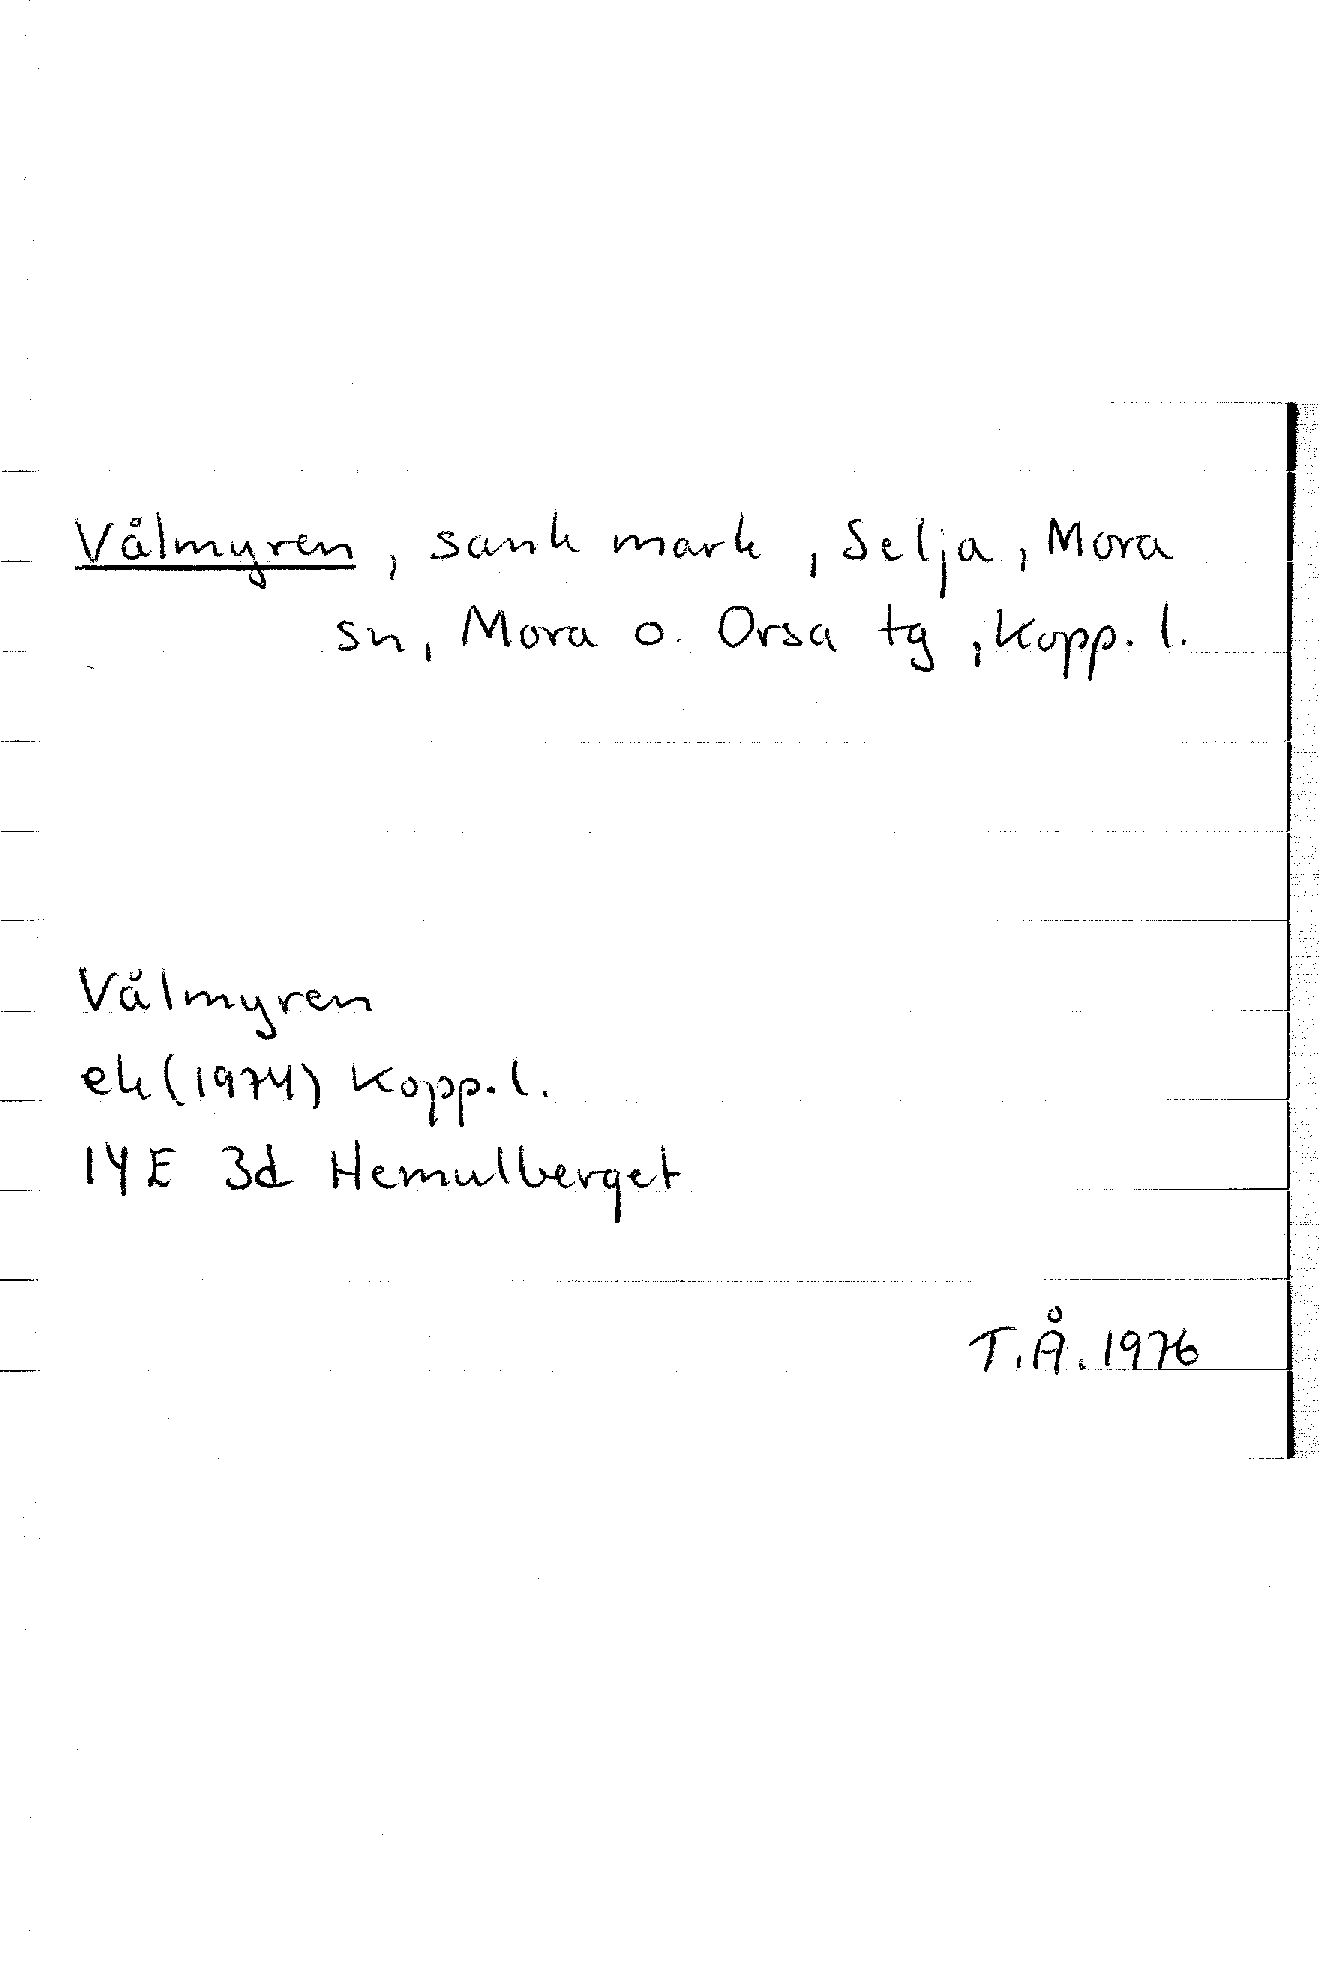 Vålmyren, sank mark, Selja, Mora
sn, Mora o. Orsa tg, Kopp. l.
Vålmyren
ek (1974) Kopp. l.
14E 3d Hemulberget
T.Å. 1976